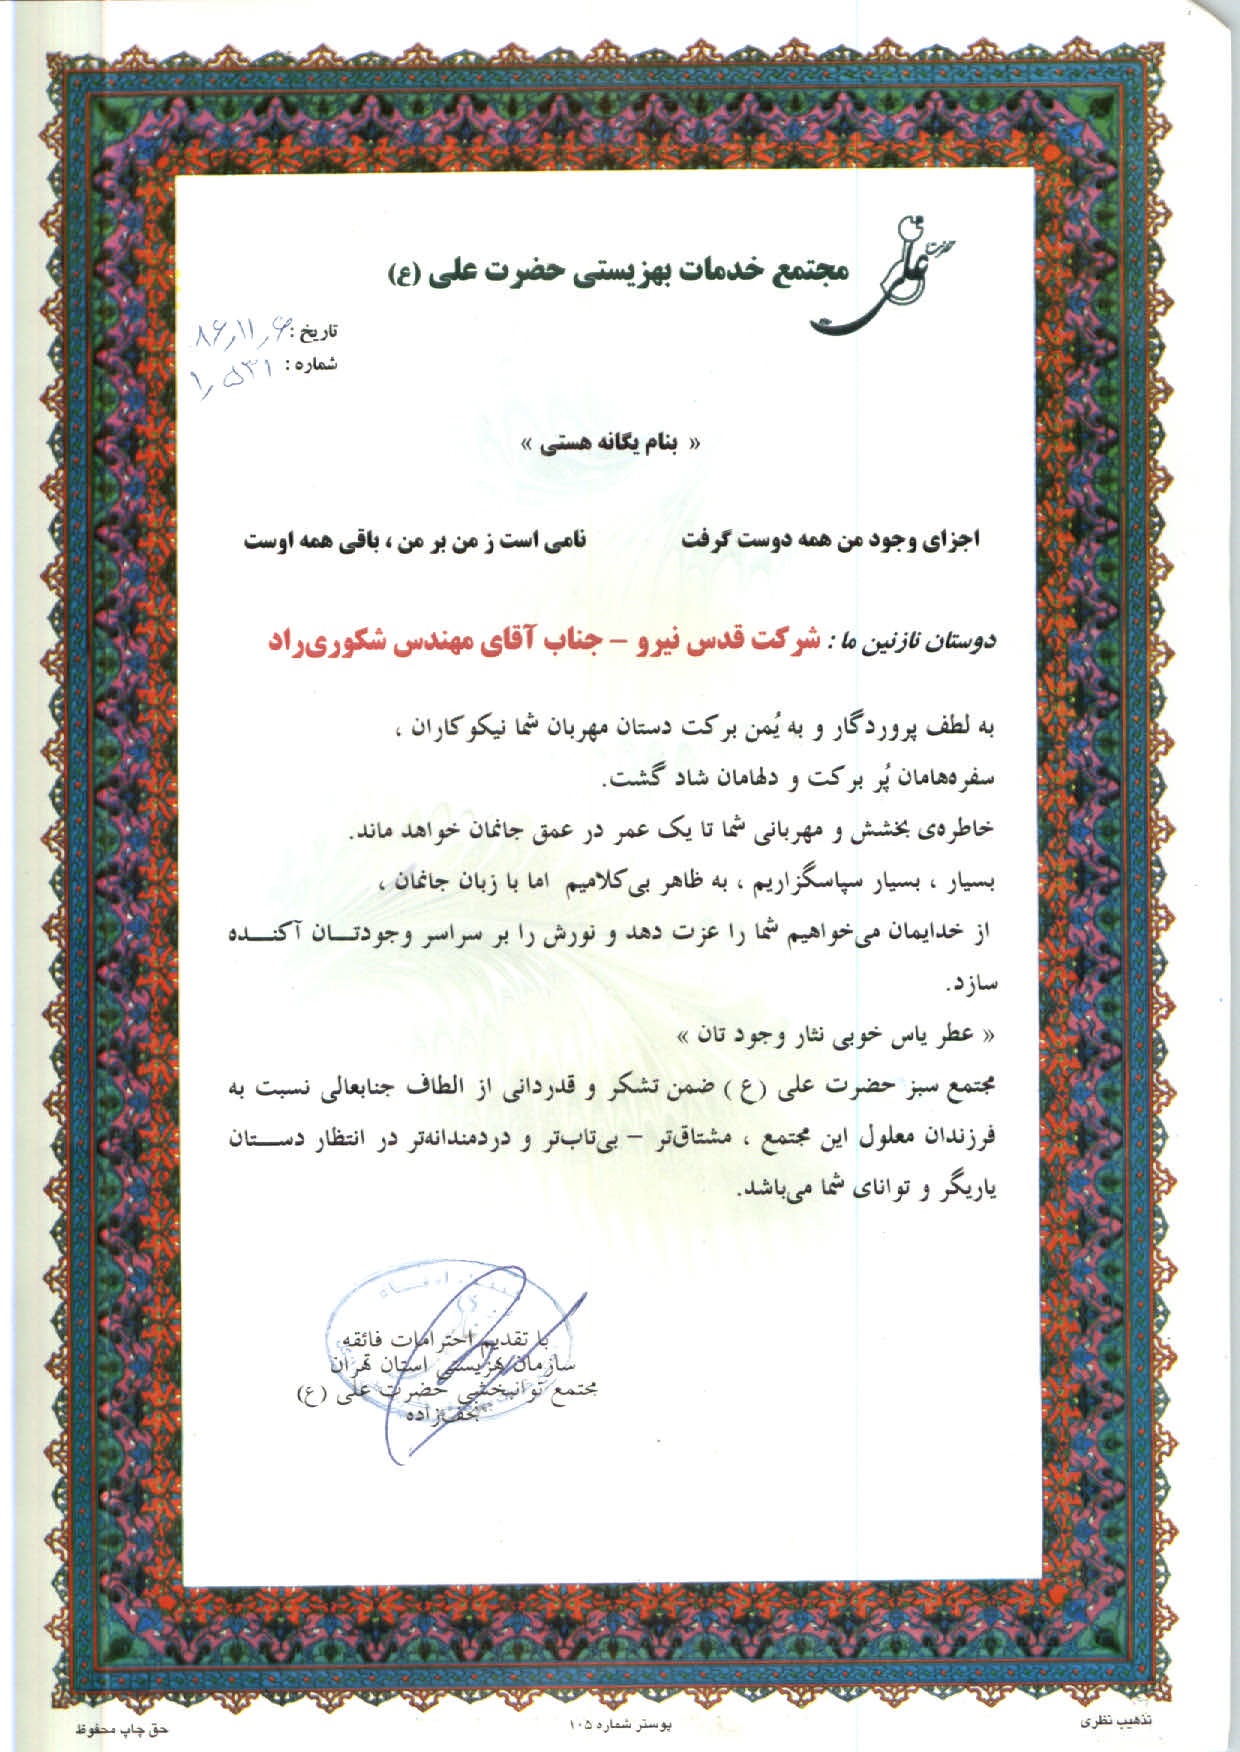 حضرت علی
مجتمع خدمات بهزیستی حضرت علی (ع)
تاریخ : ۸۶٫۱۱٫۶
شماره : ۱٫۵۳۱
« بنام یگانه هستی »
اجزای وجود من همه دوست گرفت نامی است ز من بر من ، باقی همه اوست
دوستان نازنین ما : شرکت قدس نیرو – جناب آقای مهندس شکوری‌راد
به لطف پروردگار و به یُمن برکت دستان مهربان شما نیکوکاران ،
سفره‌هامان پُر برکت و دلهامان شاد گشت.
خاطره‌ی بخشش و مهربانی شما تا یک عمر در عمق جانمان خواهد ماند.
بسیار ، بسیار سپاسگزاریم ، به ظاهر بی‌کلامیم اما با زبان جانمان ،
از خدایمان می‌خواهیم شما را عزت دهد و نورش را بر سراسر وجودتان آکنده
سازد.
« عطر یاس خوبی نثار وجود تان »
مجتمع سبز حضرت علی (ع ) ضمن تشکر و قدردانی از الطاف جنابعالی نسبت به
فرزندان معلول این مجتمع ، مشتاق‌تر – بی‌تاب‌تر و دردمندانه‌تر در انتظار دستان
یاریگر و توانای شما می‌باشد.
با تقدیم احترامات فائقه
سازمان بهزیستی استان تهران
مجتمع توانبخشی حضرت علی (ع)
نجف‌زاده
تذهیب نظری
پوستر شماره ۱۰۵
حق چاپ محفوظ